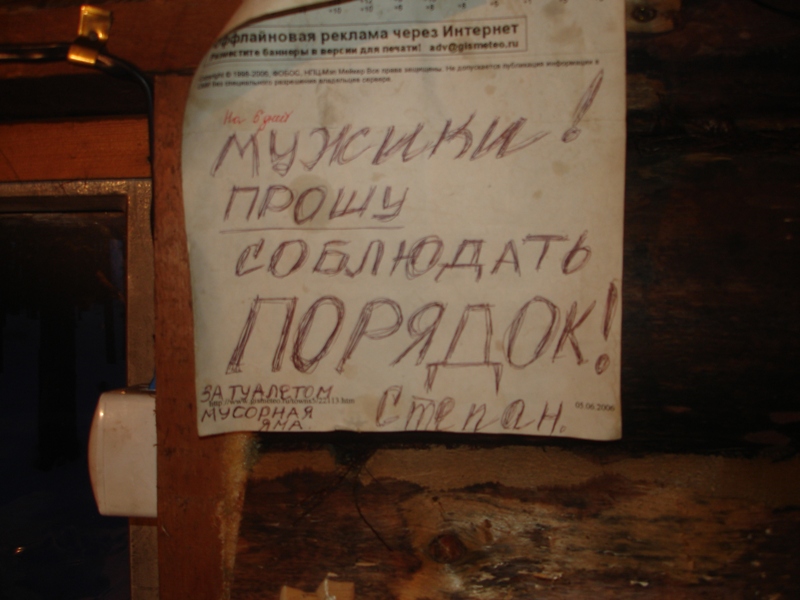 ффлайновая реклама через Интернет
Разместите баннеры в версии для печати! adv@gismeteo.ru
Copyright © 1998-2006, ФОБОС, НПЦ Мэп Мейкер Все права защищены. Не допускается публикация информации в
СМИ без специального разрешения владельцев сервера.
МУЖИКИ!
ПРОШУ
СОБЛЮДАТЬ
ПОРЯДОК!
ЗА ТУАЛЕТОМ
МУСОРНАЯ
ЯМА.
Степан.
05.06.2006